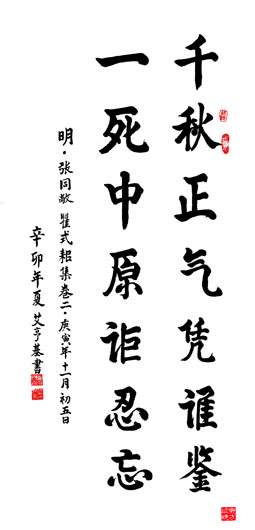 千秋正气凭谁鉴
一死中原讵忍忘
明·张同敞 瞿式耜集卷二·庚寅年十一月初五日
辛卯年夏艾亨基書